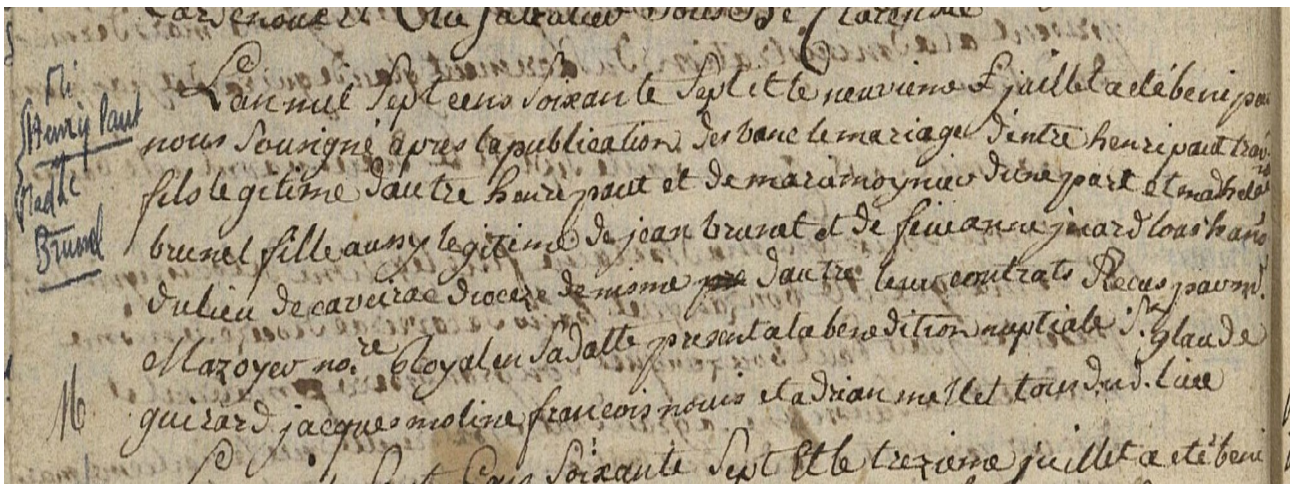 L'an mil sept cens soixante sept et le neuvieme juillet a été beni par
nous sousigné apres la publication des banc le mariage d'entre henri paut trav.
fils legitime d'autre henri paut et de marie moynier d'une part et madhelene
brunel fille aussy legitime de jean brunel et de feue anne juard tous habs
du lieu de caveirac diocese de nisme d'autre leur contrats Recus par m.
Mazoyer no.re Royal en sa datte present a la benedition nuptiale Sr glaude
guirard jacques moline francois nouis et adrian mellet tous dud. lieu
soixante sept Et le trezieme juillet a eté beni
Henry Paut
et
Brunel
M